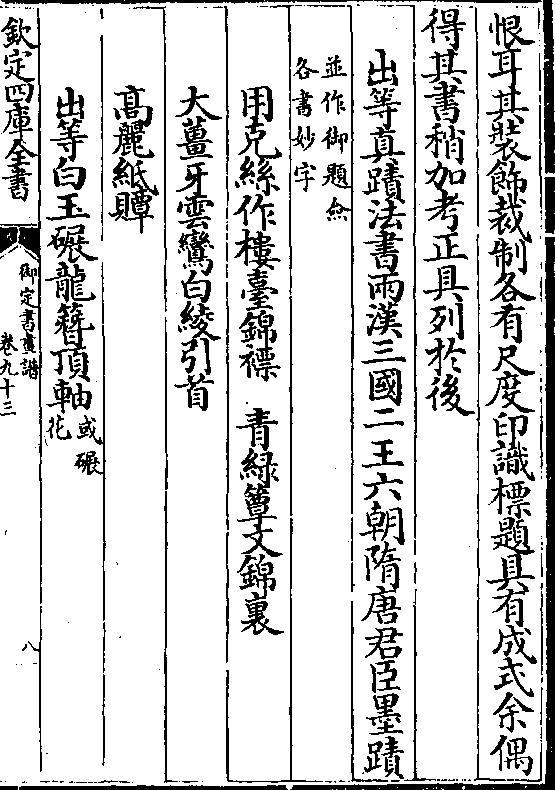 恨耳其裝飾裁制各有尺度印識標題具有成式余偶
得其書稍加考正具列於後
出等真蹟法書兩漢三國二王六朝隋唐君臣墨蹟
並作御題僉
各書妙字
用克絲作樓臺錦褾　青綠簟文錦裏
大薑牙雲鸞白綾引首
高麗紙贉
出等白玉碾龍簪頂軸或碾
花
欽定四庫全書
御定書畫譜
卷九十三
八